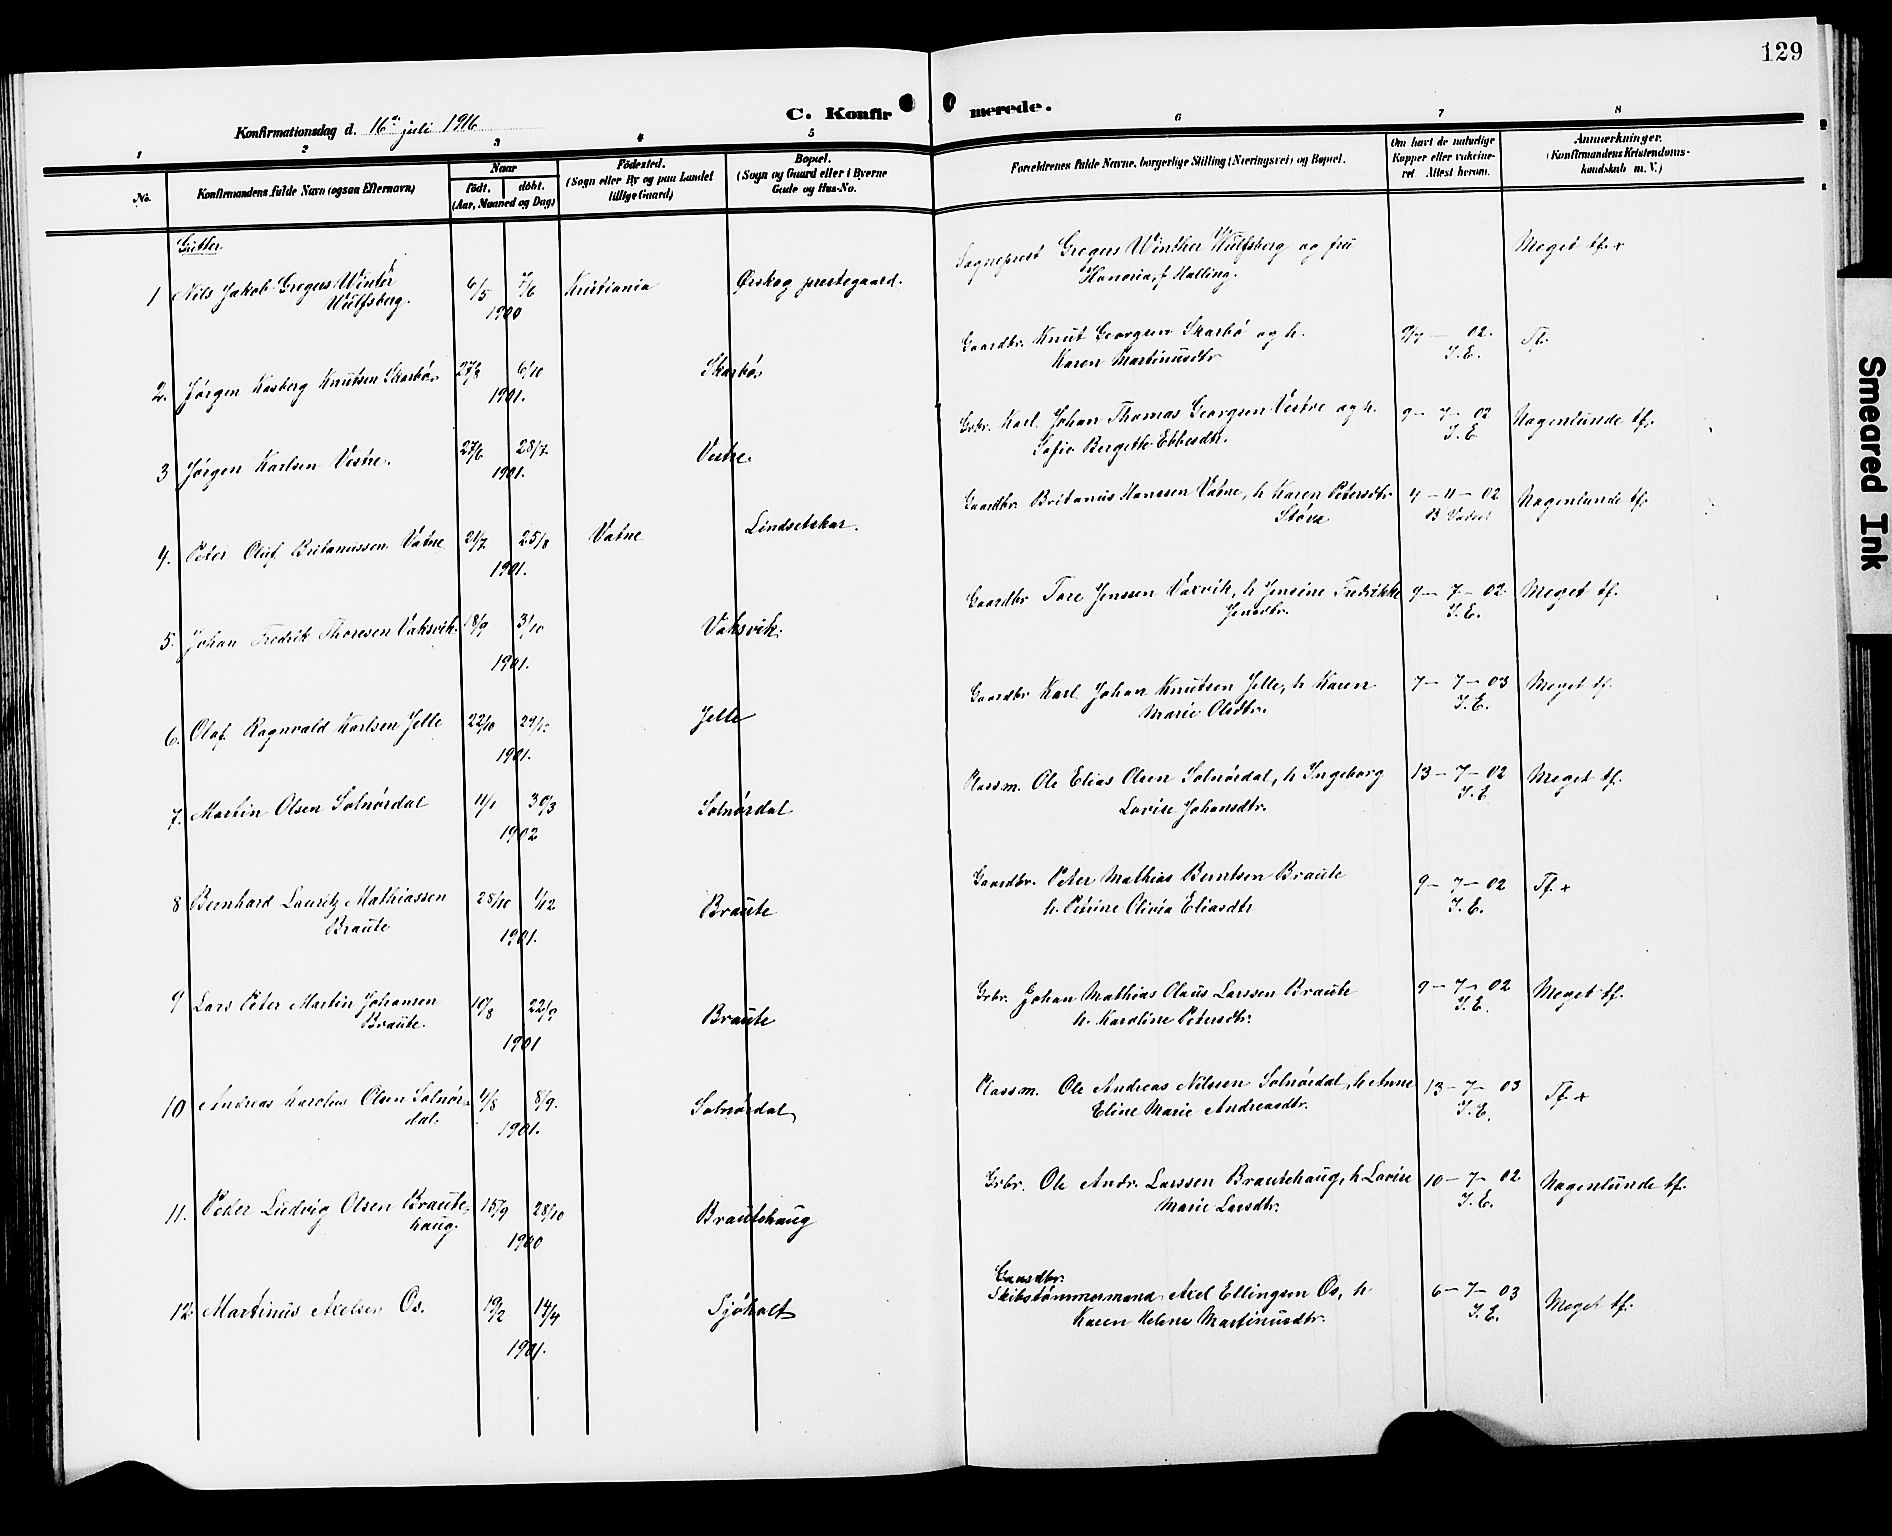 129
C. Konfirmerede.
Konfirmationsdag d. 16de juli 1916
1 2 3 4 5 6 7 8
No.
Konfirmandens fulde Navn (ogsaa Efternavn)
Naar
født. døbt.
(Aar, Maaned og Dag)
Fødested.
(Sogn eller By og paa Landet
tillige Gaard)
Bopæl.
(Sogn og Gaard eller i Byerne
Gade og Hus-No.
Forældrenes fulde Navne, borgerlige Stilling (Næringsvei) og Bopæl.
Om havt de naturlige
Kopper eller vaksine-
ret. Attest herom.
Anmerkninger.
(Konfirmandens Kristendoms-
kundskab m. V.)
Gutter
1 Nils Jakob Gregers Winter
Wulfsberg.
6/5 7/6
1900
Kristiania
Ørskog prestegaard.
Sogneprest Gregers Winther Wulfsberg og fru
Honoria, f Malling.
Meget tf. x
2. Jørgen Kasberg Knutsen Skarbø
27/8 6/10
1901.
Skarbø
Gaardbr. Knut Georgsen Skarbø og h.
Karen Martinusdtr
9/7 — 02.
I.E.
Tf.
3 Jørgen Karlsen Vestre.
27/6 28/7
1901.
Vestre.
Grbr. Karl Johan Thomas Georgsen Vestre og h.
Sofie Bergitte Ebbesdtr.
9 — 7 — 02
I.E.
Nogenlunde tf.
4. Peter Oluf Britanussen Vatne
21/7 25/8
1901.
Vatne
Lindsetskar.
Gaardbr. Britanus Hanssen Vatne, h Karen Petersdtr
Støve
4 — 11 — 02
Nogenlunde tf.
5. Johan Fredrik Thoresen Vaksvik.
18/9 3/10
1901.
Vaksvik.
Gaardbr Tore Jenssen Vaxvik, h Jensine Fredrikke
Jensdtr.
9 — 7 — 02
I.E.
Meget tf.
6. Olaf Ragnvald Karlsen Jelle
22/10
1901.
Jelle
Gaardbr Karl Johan Knutsen Jelle, h Karen
Marie Olsdtr.
7 — 7 — 03
I.E.
Meget tf.
7. Martin Olsen Solnørdal
11/1 30/3
1902
Solnørdal
Plassm. Ole Elias Olsen Solnørdal, h Ingeborg
Lovise Johansdtr.
13 — 7 — 02
I.E
Meget tf.
8 Bernhard Lauritz Mathiassen
Braute
28/10 1/12
1901.
Braute
Gaardbr. Peter Mathias Berntsen Braute
h. Petrine Olivia Eliasdtr
9 — 7 — 02
I.E.
Tf. x
9 Lars Peter Martin Johansen
Braute.
10/8 22/9
1901
Braute
Grbr. Johan Mathias Olaus Larssen Braute
h. Karoline Petersdtr.
9 — 7 — 02
I.E.
Meget tf.
10 Andreas Karolius Olsen Solnør-
dal.
4/8 8/9.
1901.
Solnørdal
Plassm. Ole Andreas Nilsen Solnørdal, h Anne
Eline Marie Andreasdtr.
13 — 7 — 03
I.E.
Tf. x
11. Peder Ludvig Olsen Braute-
haug.
15/9 28/10
1900
Brautehaug
Grbr. Ole Andr. Larssen Brautehaug, h Lovise
Marie Larsdtr.
10 — 7 — 02
I.E.
Nogenlunde tf.
12. Martinus Axelsen Os.
19/2 14/4
1901.
Sjøholt
Gaardbr.
Skibstømmermand Axel Ellingsen Os, h
Karen Helene Martinusdtr.
6 — 7 — 03
I.E.
Meget tf.
Smeared Ink